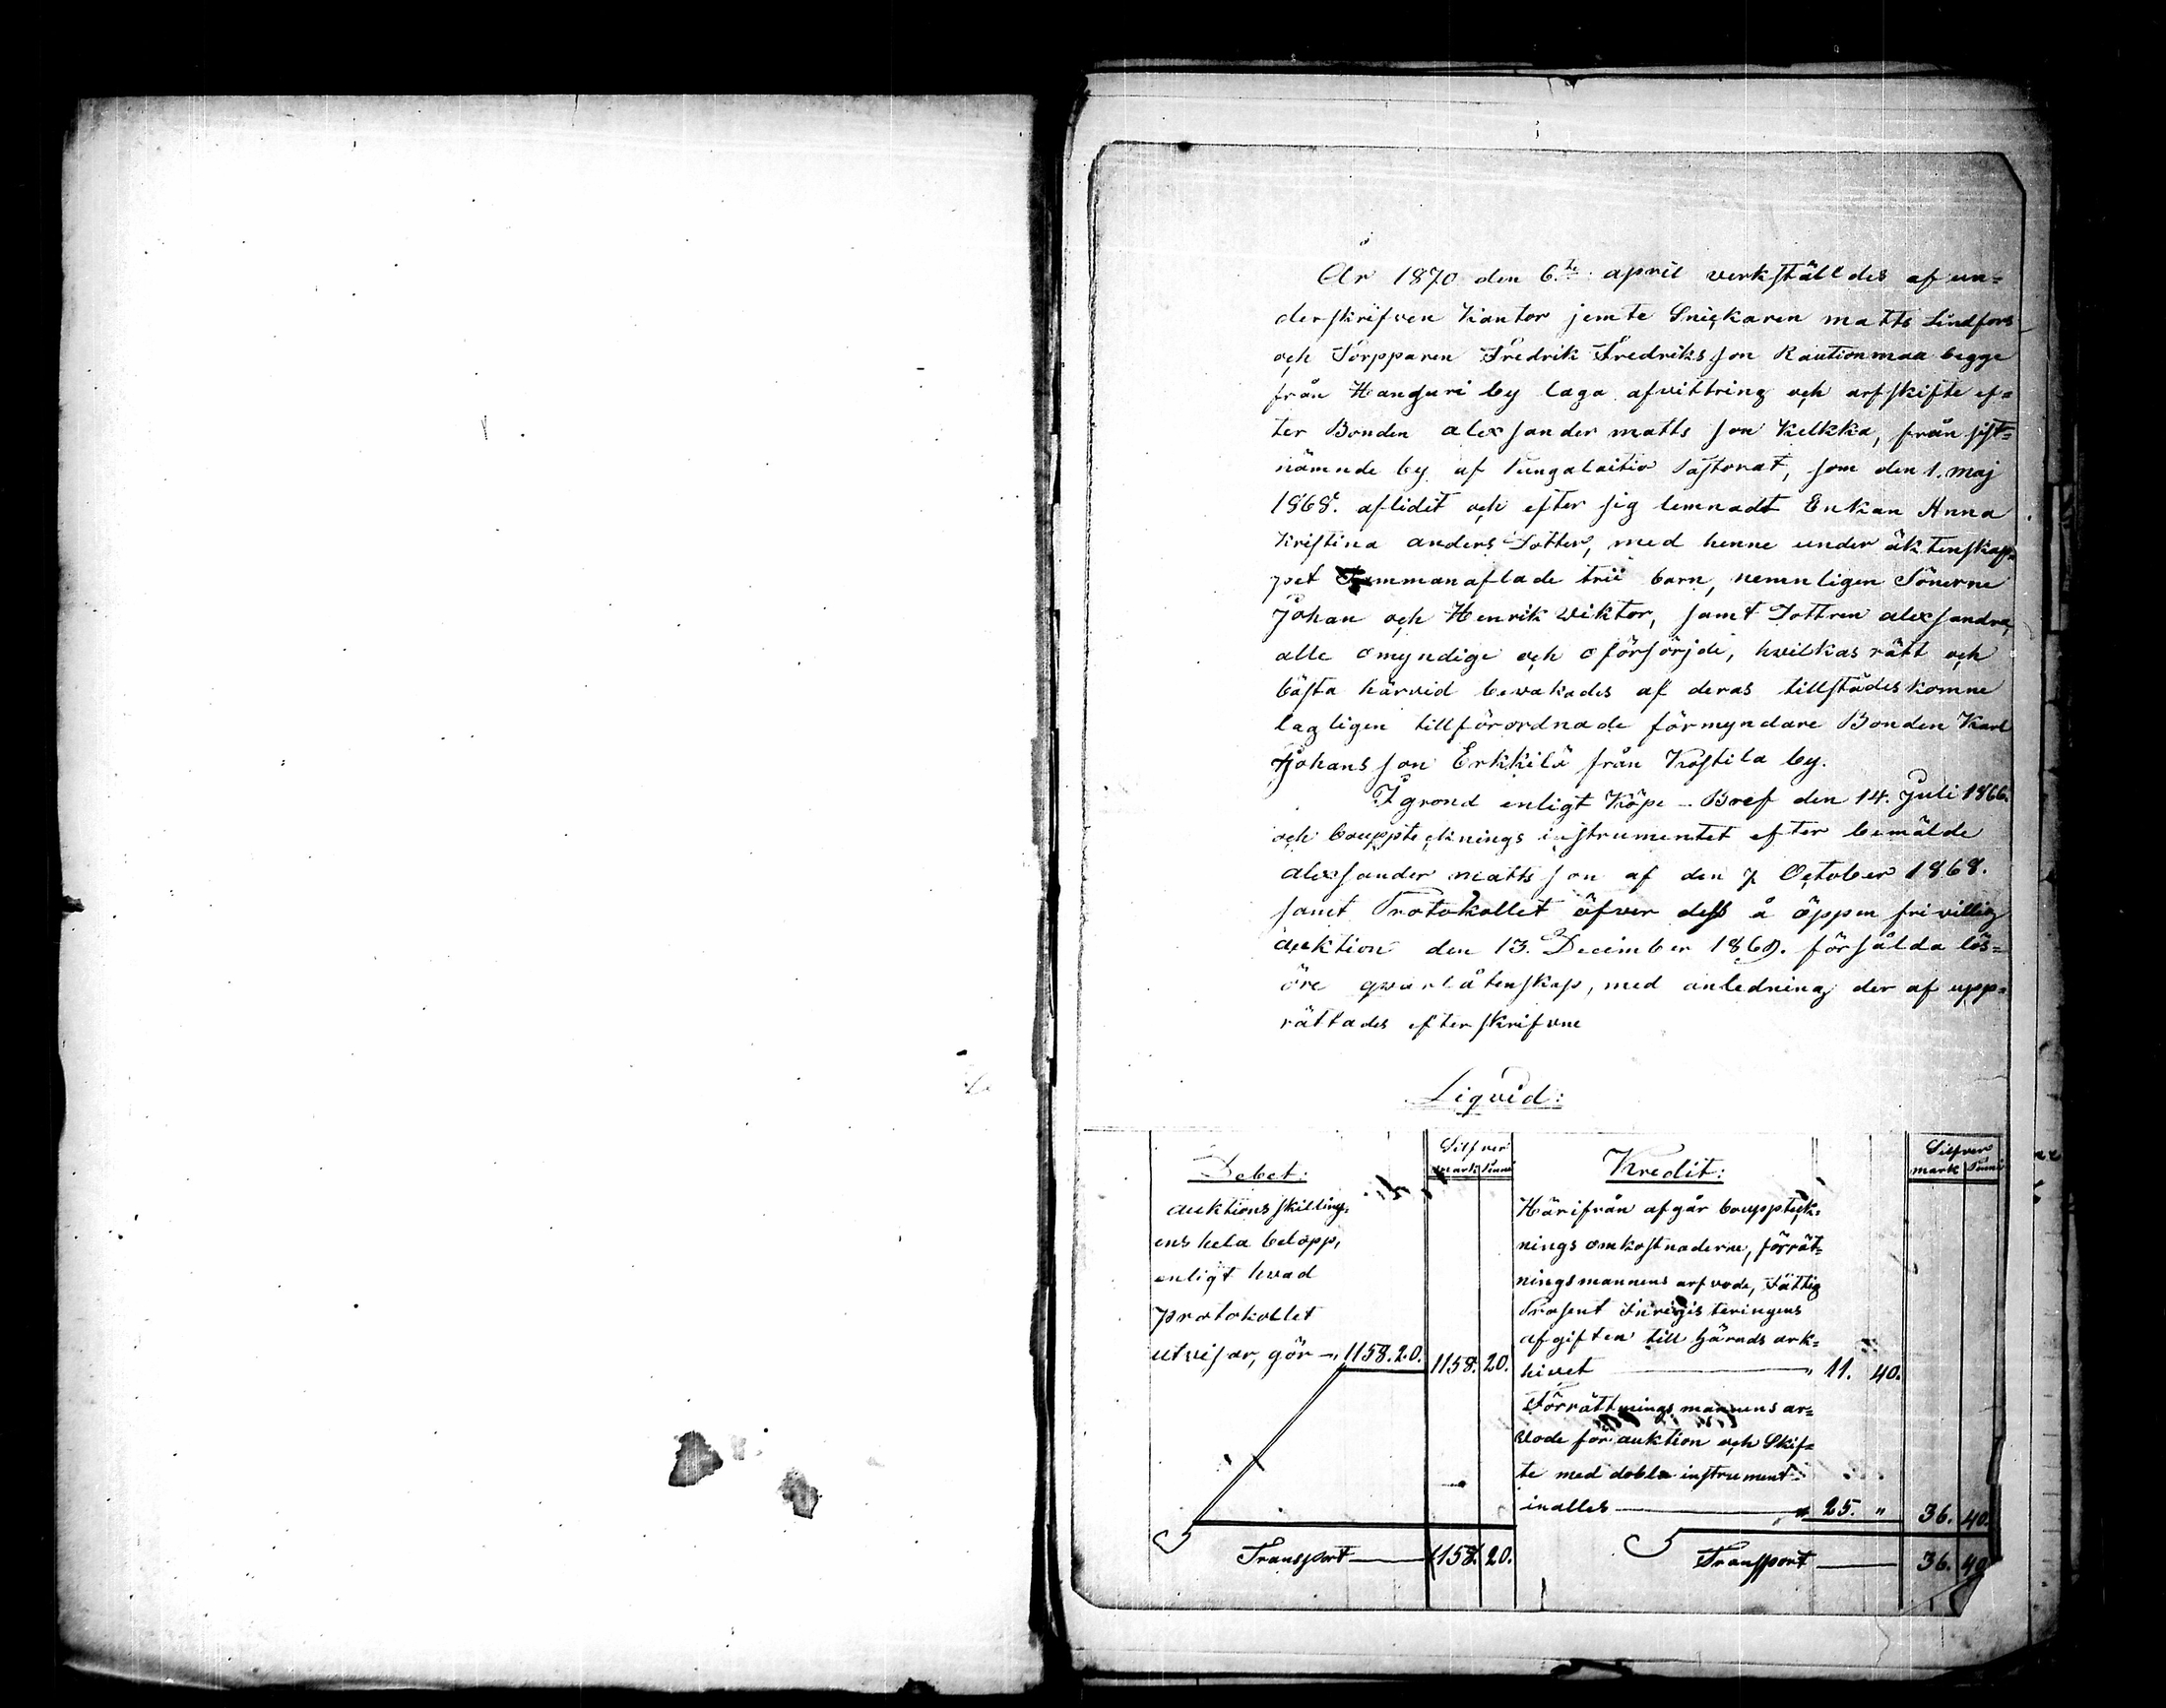 År 1870 den 6.te april verkställdes af un=
derskrifven Kantor jemte Snickaren matts Lindfors
och Torpparen Fredrik Fredriksson Rautionmaa begge
från Hanguri by laga afvittring och arfskifte ef=
ter Bonden alexsander matts son Kelkka, från sist=
nämnde by af Pungalaitio Pastorat, som den 1. maj
1868. aflidit och efter sig lemnadt Enkan Anna
Kristina anders Dotter, med henne under äktenskap=
pet Sammanaflade trii barn, nemnligen Sönerne
Johan och Henrik Wiktor, samt Dottren alexsandra,
alle omyndige och oförsörjde, hvilkas rätt och
bästa härvid bevakades af deras tillstädeskomne
lagligen tillförordnade förmyndare Bonden Karl
Johansson Erkkilä från Kostila by.
I grond enligt Köpe - Bref den 14. Juli 1866.
och bouppteckningsinstrumentet efter bemälde
alexsander mattsson af den 7 October 1868.
samt Protokollet öfver dess å öppen frivillig
auktion den 13. December 1869. försålda lös=
öre qvarlåtenskap, med anledning der af upp=
rättades efterskrifvne
Liqvid:
Debet: Silfver mark Penni Kredit: Silfver mark Penni
auktionsskilling=
ens hela belopp,
enligt hvad
protokollet
utvisar, gör — 1158.20. 1158. 20.
Härifrån afgår bouppteck=
nings omkostnaderne, förrät=
ningsmannens arfvode, Fättig
Prosent Inregisteringens
afgiften till Härads ark=
hivet — 11. 40.
Förrättnings mannens ar=
vode för auktion och Skif=
te med dobla instrument
inalles — 25. " 36. 40.
Transport — 1158. 20. Transport — 36. 40.